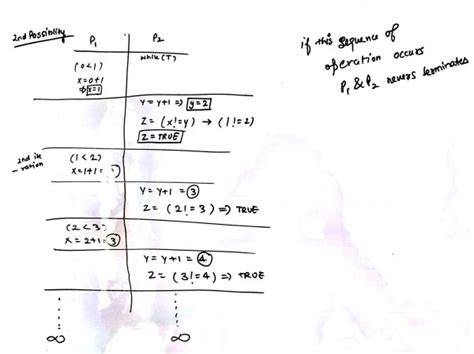 2nd Possibility
P1
P2
while(T)
(0<1)
x=0+1
⇒ x=1
y = y+1 ⇒ y=2
Z = (x!=y) → (1!=2)
Z = TRUE
2nd it
-ration
(1<2)
x=1+1 =
y = y+1 = 3
Z = (2!=3) ⇒ TRUE
(2<3)
x = 2+1 = 3
y = y+1 = 4
Z = (3!=4) ⇒ TRUE
∞
∞
if this sequence of
operation occurs
P1 & P2 nevers terminates